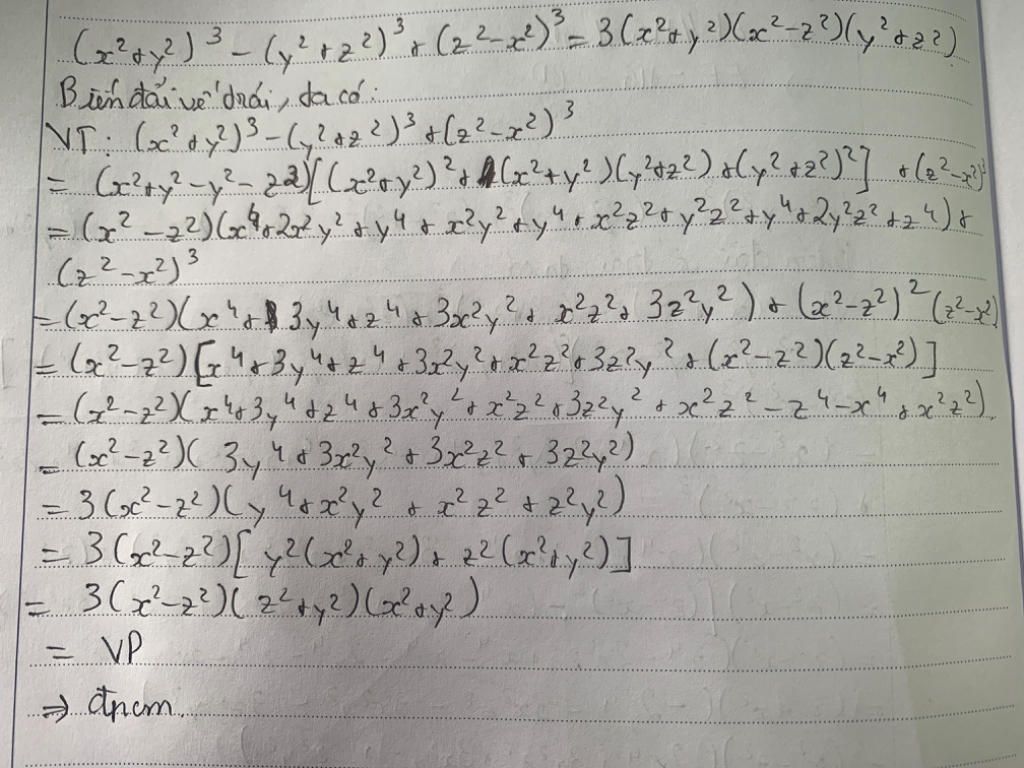 (x²+y²)³ - (y²+z²)³ + (z²-x²)³ = 3(x²+y²)(x²-z²)(y²+z²)
Biến đổi vế trái, ta có:
VT: (x²+y²)³ - (y²+z²)³ + (z²-x²)³
= (x²+y²-y²-z²)[(x²+y²)²+(x²+y²)(y²+z²)+(y²+z²)²] + (z²-x²)³
= (x²-z²)(x⁴+2x²y²+y⁴+x²y²+y⁴+x²z²+y²z²+y⁴+2y²z²+z⁴)+
(z²-x²)³
= (x²-z²)(x⁴+3y⁴+z⁴+3x²y²+x²z²+3z²y²)+(x²-z²)²(z²-x²)
= (x²-z²)[x⁴+3y⁴+z⁴+3x²y²+x²z²+3z²y²+(x²-z²)(z²-x²)]
= (x²-z²)(x⁴+3y⁴+z⁴+3x²y²+x²z²+3z²y²+x²z²-z⁴-x⁴+x²z²)
= (x²-z²)(3y⁴+3x²y²+3x²z²+3z²y²)
= 3(x²-z²)(y⁴+x²y²+x²z²+z²y²)
= 3(x²-z²)[y²(x²+y²)+z²(x²+y²)]
= 3(x²-z²)(z²+y²)(x²+y²)
= VP
⇒ đpcm.